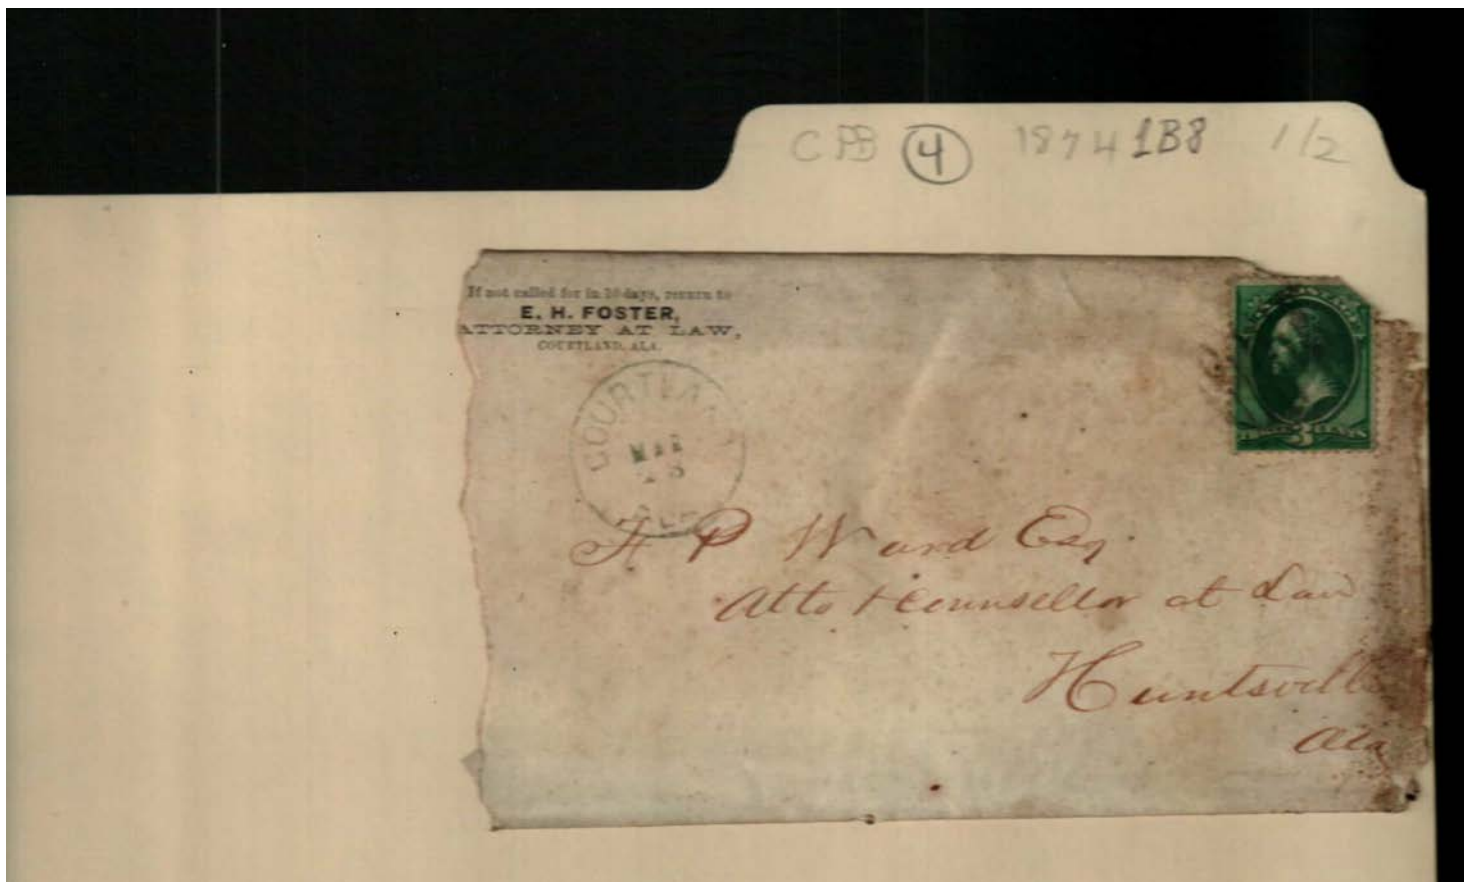 CPB 4 1874 1B8 1/2
If not called for in 10 days, return to
E. H. FOSTER,
ATTORNEY AT LAW,
COURTLAND, ALA.
COURTLA
MAR
ALA
P Ward Esq.
Atto & Counsellor at Law
Huntsville
Ala
3